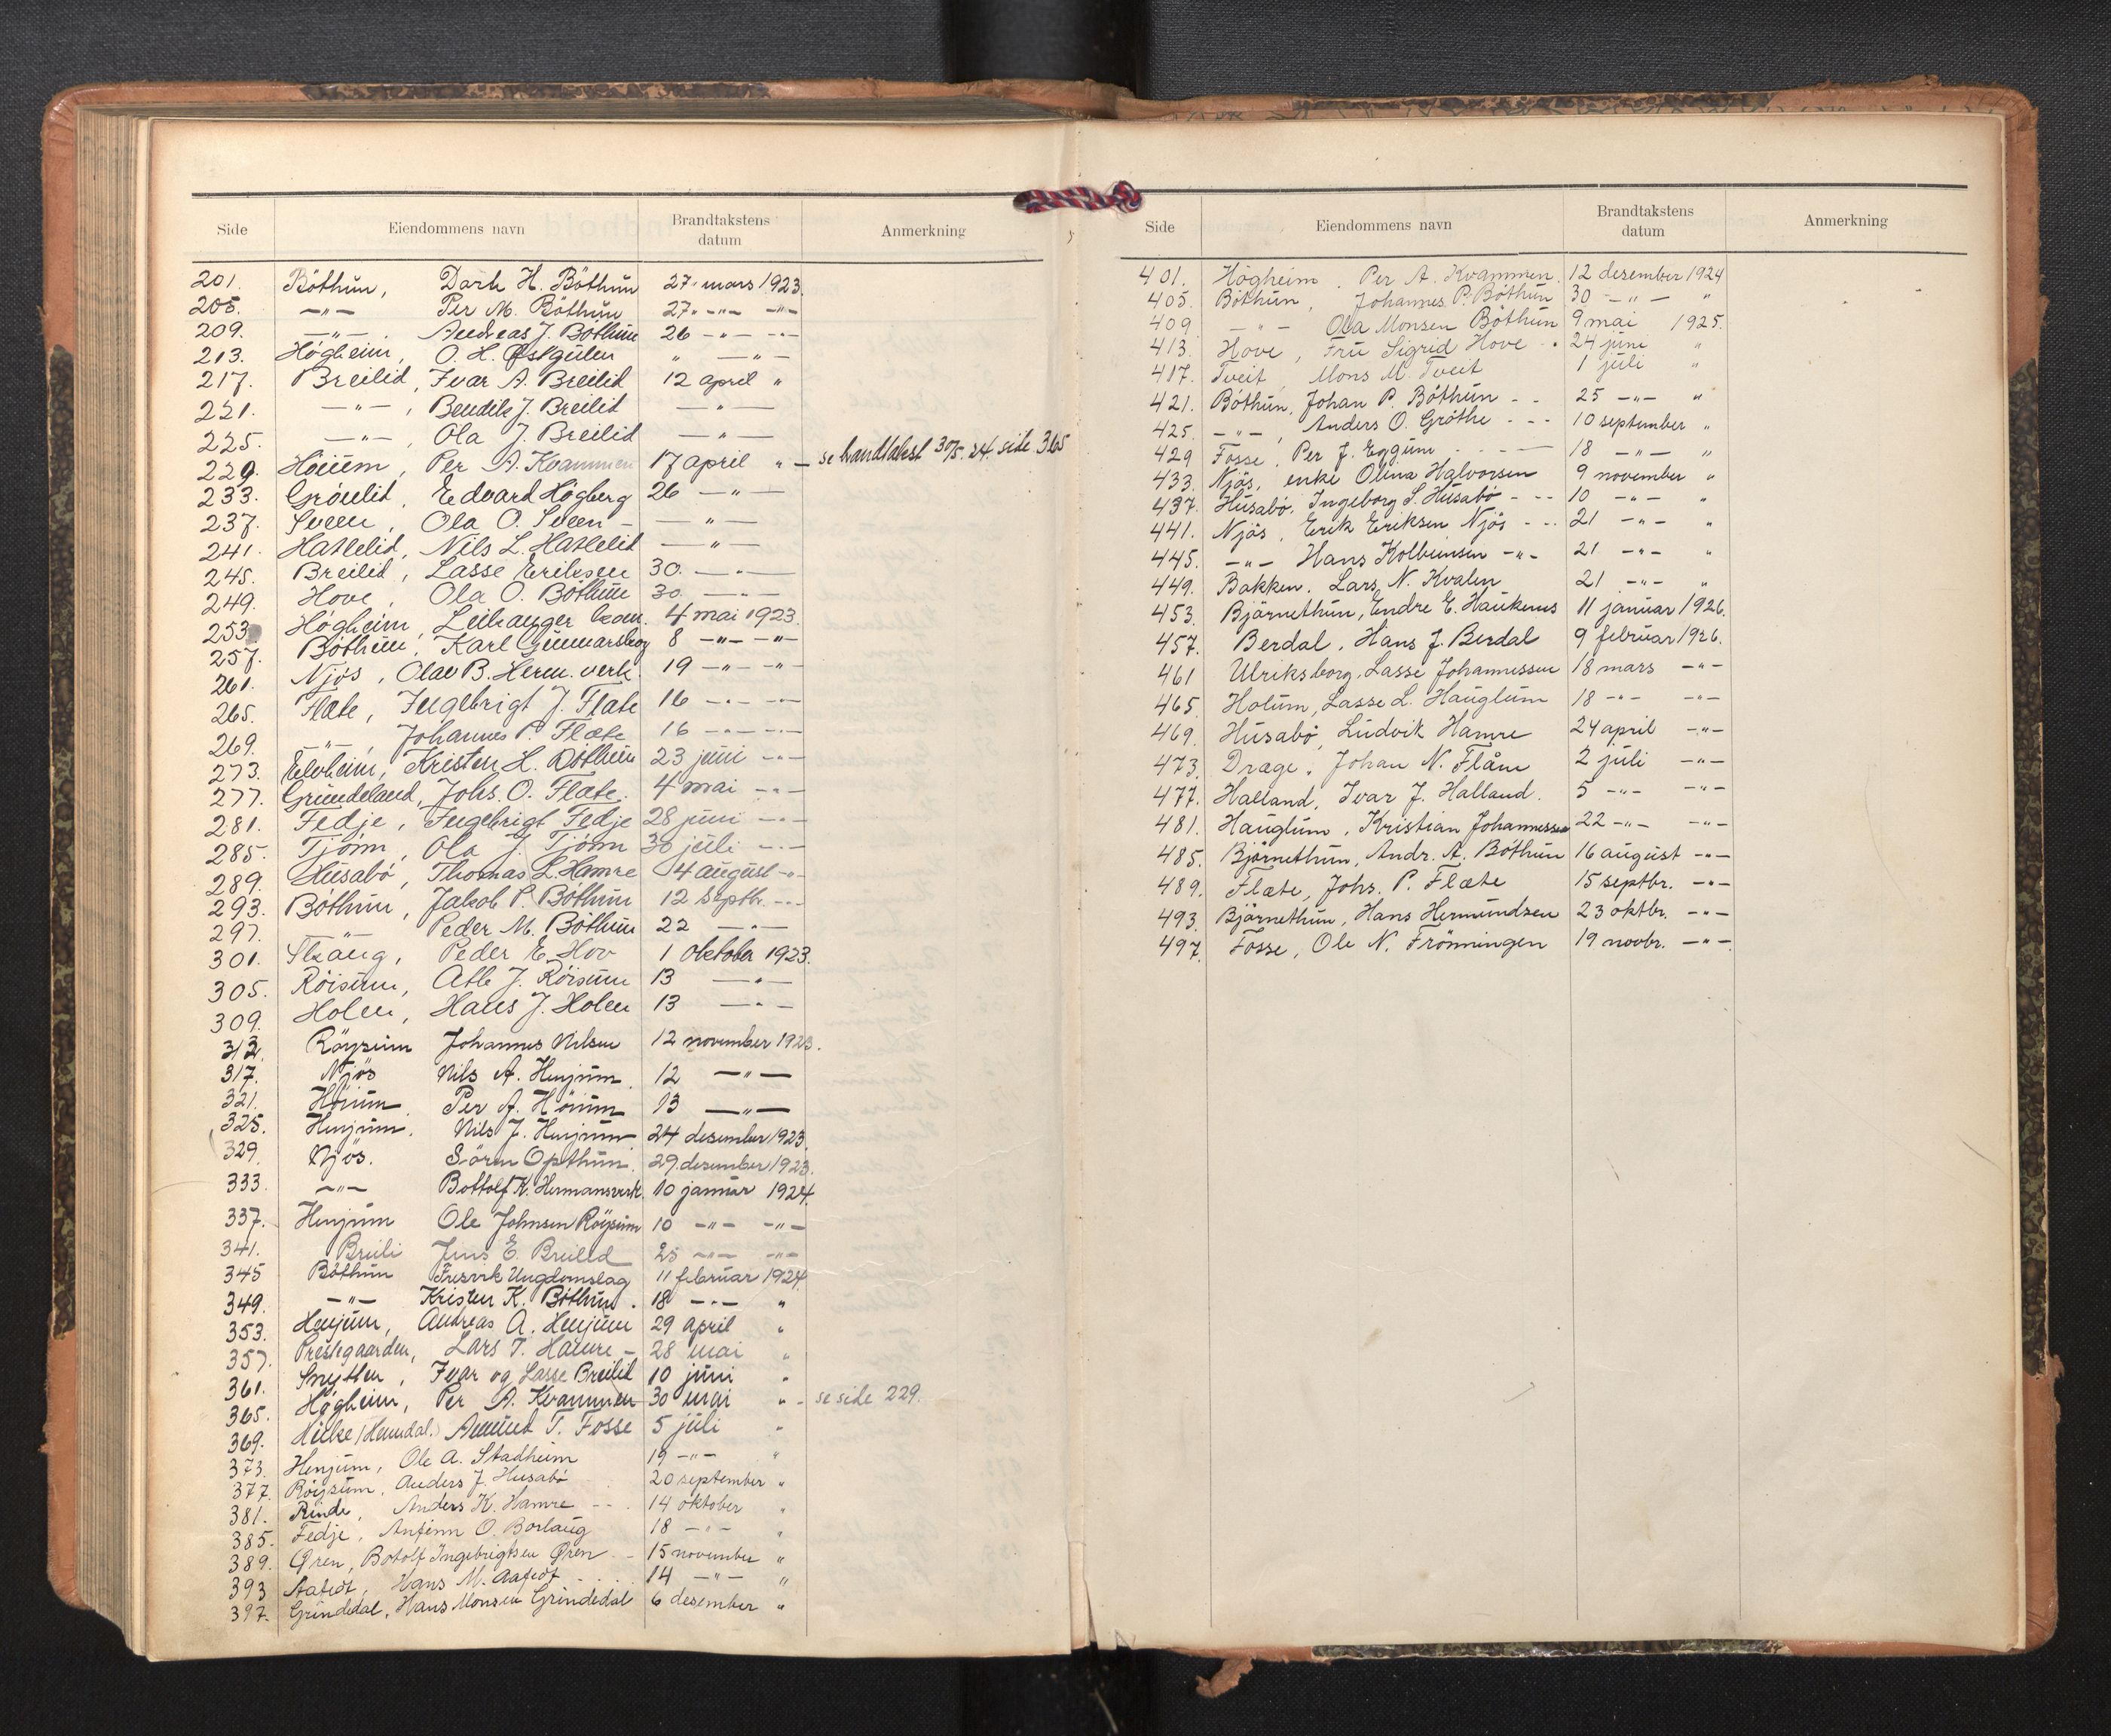 Side Eiendommens navn Brandtakstens datum Anmerkning
201. Böthun, H. Böthun 27 mars 1923.
205. —"— Per M. Böthun 27. —"— —"—
209. —"— Andreas J. Böthun 26 —"— —"—
213. Högheim, O. H. Østgulen " —"—
217. Breilid, Ivar A. Breilid 12 april "
221. —"—, Bendik J. Breilid —"—
225. —"—, Ola J. Breilid —"—
229. Höium, Per A. Kvammen 17 april " — se 30/5.24. side 365
233. Grönlid, Edvard Högberg 26 —"—
237. Sveen, Ola O. Sveen — —"—
241. Hatlelid, Nils L. Hatlelid —"—
245. Breilid, Lasse Eriksen 30. —"—
249. Hove, Ola O. Böthun 30 —"—
253. Högheim, Leikanger kom. 4 mai 1923.
257. Böthun, Karl 8 —"— —"—
261. Njös, Olav B. Herm. verk. 19 —"— —"—
265. Flæte, Ingebrigt J. Flæte 16 —"— —"—
269. —"— Johannes P. Flæte 16 —"— —"—
273. Elvheim, Kristen H. Böthun 23 juni —"—
277. Grundeland, Johs. O. Flæte. 4 mai —"—
281. Fedje, Ingebrigt Fedje 28 juni —"—
285. Tjönn, Ola J. Tjönn 30 juli —"—
289. Husabö, Thomas L. Hamre 4 august —"—
293. Böthun, Jakob P. Böthun 12 septbr. —"—
297. —"— Peder M. Böthun 22 —"—
301. Peder E. Hov 1 oktober 1923.
305. Röisum, Atle J. Röisum 13 —"—
309. Holen, Hans J. Holen 13 —"—
313. Röysum Johannes Nilsen 12 november 1923.
317. Njös Nils A. Henjum 12 —"—
321. Höium Per A. Höium 13 —"—
325. Henjum. Nils J. Henjum 24 desember 1923.
329. Njös. Sören Opthun. 29 desember 1923.
333. —"— Bottolf K. Hermansverk. 10 januar 1924.
337. Henjum Ole Johnsen Röysum 10 —"— —"—
341. Breili Jens E. Breilid 25 —"— —"—
345 Böthun Fresvik Ungdomslag 11 februar 1924.
349. —"— Kristen K. Böthun. 18 —"— "
353. Henjum, Andreas A. Henjum 29 april "
357. Prestegaarden, Lars T. Hamre — 28 mai "
361. Ivar og Lasse Breilid 10 juni "
365. Högheim, Per A. Kvammen 30 mai " - se side 229.
369. (Hemdal.) T. Fosse 5 juli "
373. Henjum, Ole A. Stadheim 19 —"— "
377. Röysum, Anders J. Husabö 20 september "
381. Rinde, Anders K. Hamre 14 oktober "
385. Fedje, Anfinn O. Borlaug 18 —"— "
389. Øren, Botolf Ingebrigtsen Øren 15 november "
393 Hans M. Aafedt 14 —"— "
397. Grindedal, Hans Monsen Grindedal 6 desember "
Side Eiendommens navn Brandtakstens datum Anmerkning
401. Högheim, Per A. Kvammen. 12 desember 1924
405. Böthun, Johannes P. Böthun 30 —"— "
409 —"— Ola Monsen Böthun 9 mai 1925.
413. Hove, Fru Sigrid Hove 24 juni "
417. Tveit Mons M. Tveit 1 juli "
421. Böthun, Johan P. Böthun - - 25 —"— "
425. —"—, Anders O. Gröthe - - - 10 september "
429 Fosse, Per J. Eggum 18 —"— "
433. Njös, enke Olina Halvorsen 9 november "
437. Husabö, Ingeborg S. Husabö - - - 10 —"— "
441. Njös, Erik Eriksen Njös - - - 21 —"— "
445. —"— Hans Kolbeinsen —"— 21 —"— "
449. Bakken. Lars N. Kvalen 21 —"— "
453. Björnethun, Endre E. Haukenes 11 januar 1926.
457. Berdal, Hans J. Berdal 9 februar 1926.
461 Ulriksborg, Lasse Johannessen 18 mars —"—
465. Holum, Lasse L. Hauglum 18 —"— —"—
469. Husabö, Ludvik Hamre 24 april —"—
473. Drage, Johan N. Flåm 2 juli —"—
477. Halland, Ivar J. Halland. 5 —"— —"—
481. Hauglum, Kristian Johannessen 22 —"— —"—
485. Björnethun, Andr. A. Böthun 16 august —"—
489. Flæte, Johs. P. Flæte 15 septbr. —"—
493. Björnethun, Hans Hermundsen 23 oktbr. —"—
497. Fosse, Ole N. Frönningen 19 novbr. —"—